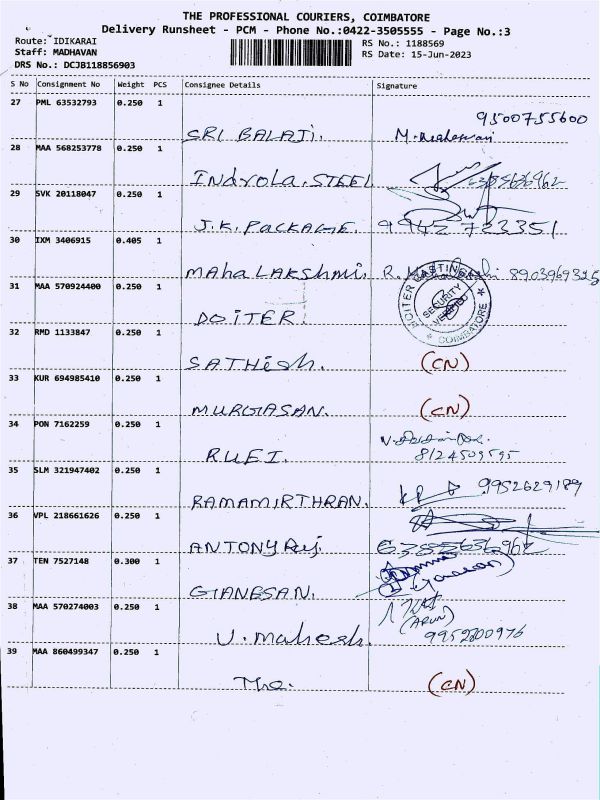 THE PROFESSIONAL COURIERS, COIMBATORE
Delivery Runsheet - PCM - Phone No.:0422-3505555 - Page No.:3
Route: IDIKARAI
RS No.: 1188569
Staff: MADHAVAN
RS Date: 15-Jun-2023
DRS No.: DCJB118856903
S No Consignment No Weight PCS Consignee Details Signature
27 PML 63532793 0.250 1
9500755600
SRI BALAJI.
28 MAA 568253778 0.250 1
Indrola. STEEL
29 SVK 20118047 0.250 1
J.K. PACKAGE. 9942 723351
30 IXM 3406915 0.405 1
MAha LAKSHmi. 8903969325
31 MAA 570924400 0.250 1
DOITER CASTINGS
SECURITY VERIFIED
COIMBATORE
DOITER.
32 RMD 1133847 0.250 1
SATHish. (CN)
33 KUR 694985410 0.250 1
MURGASAN. (CN)
34 PON 7162259 0.250 1
RUEI. 8124509595
35 SLM 321947402 0.250 1
9952629189
RAMAMIRTHRAN.
36 VPL 218661626 0.250 1
ANTONY Raj. 6385636962
37 TEN 7527148 0.300 1
GANESAN.
38 MAA 570274003 0.250 1
(ARUN)
U. mahesh. 9952200976
39 MAA 860499347 0.250 1
The. (CN)